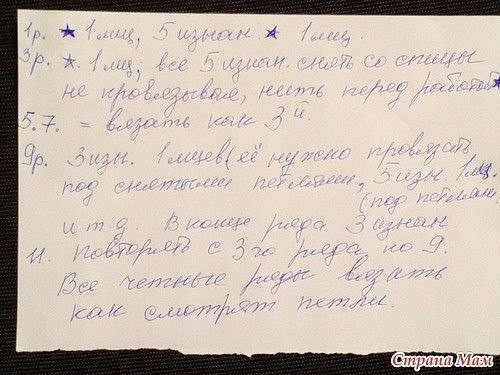 1р. ★ 1 лиц, 5 изнан. ★ 1 лиц.
3р. ★. 1 лиц; все 5 изнан. снять со спицы
не провязывая, нить перед работой ★
5.7. = вязать как 3й.
9р. 3 изн. 1 лицев (её нужно провязать
под снятыми петлями, 5 изн. 1 лиц.
(под петлями.
и т.д. В конце ряда 3 изнан
11. Повторять с 3го ряда по 9.
Все четные ряды вязать
как смотрят петли.
Страна Мам